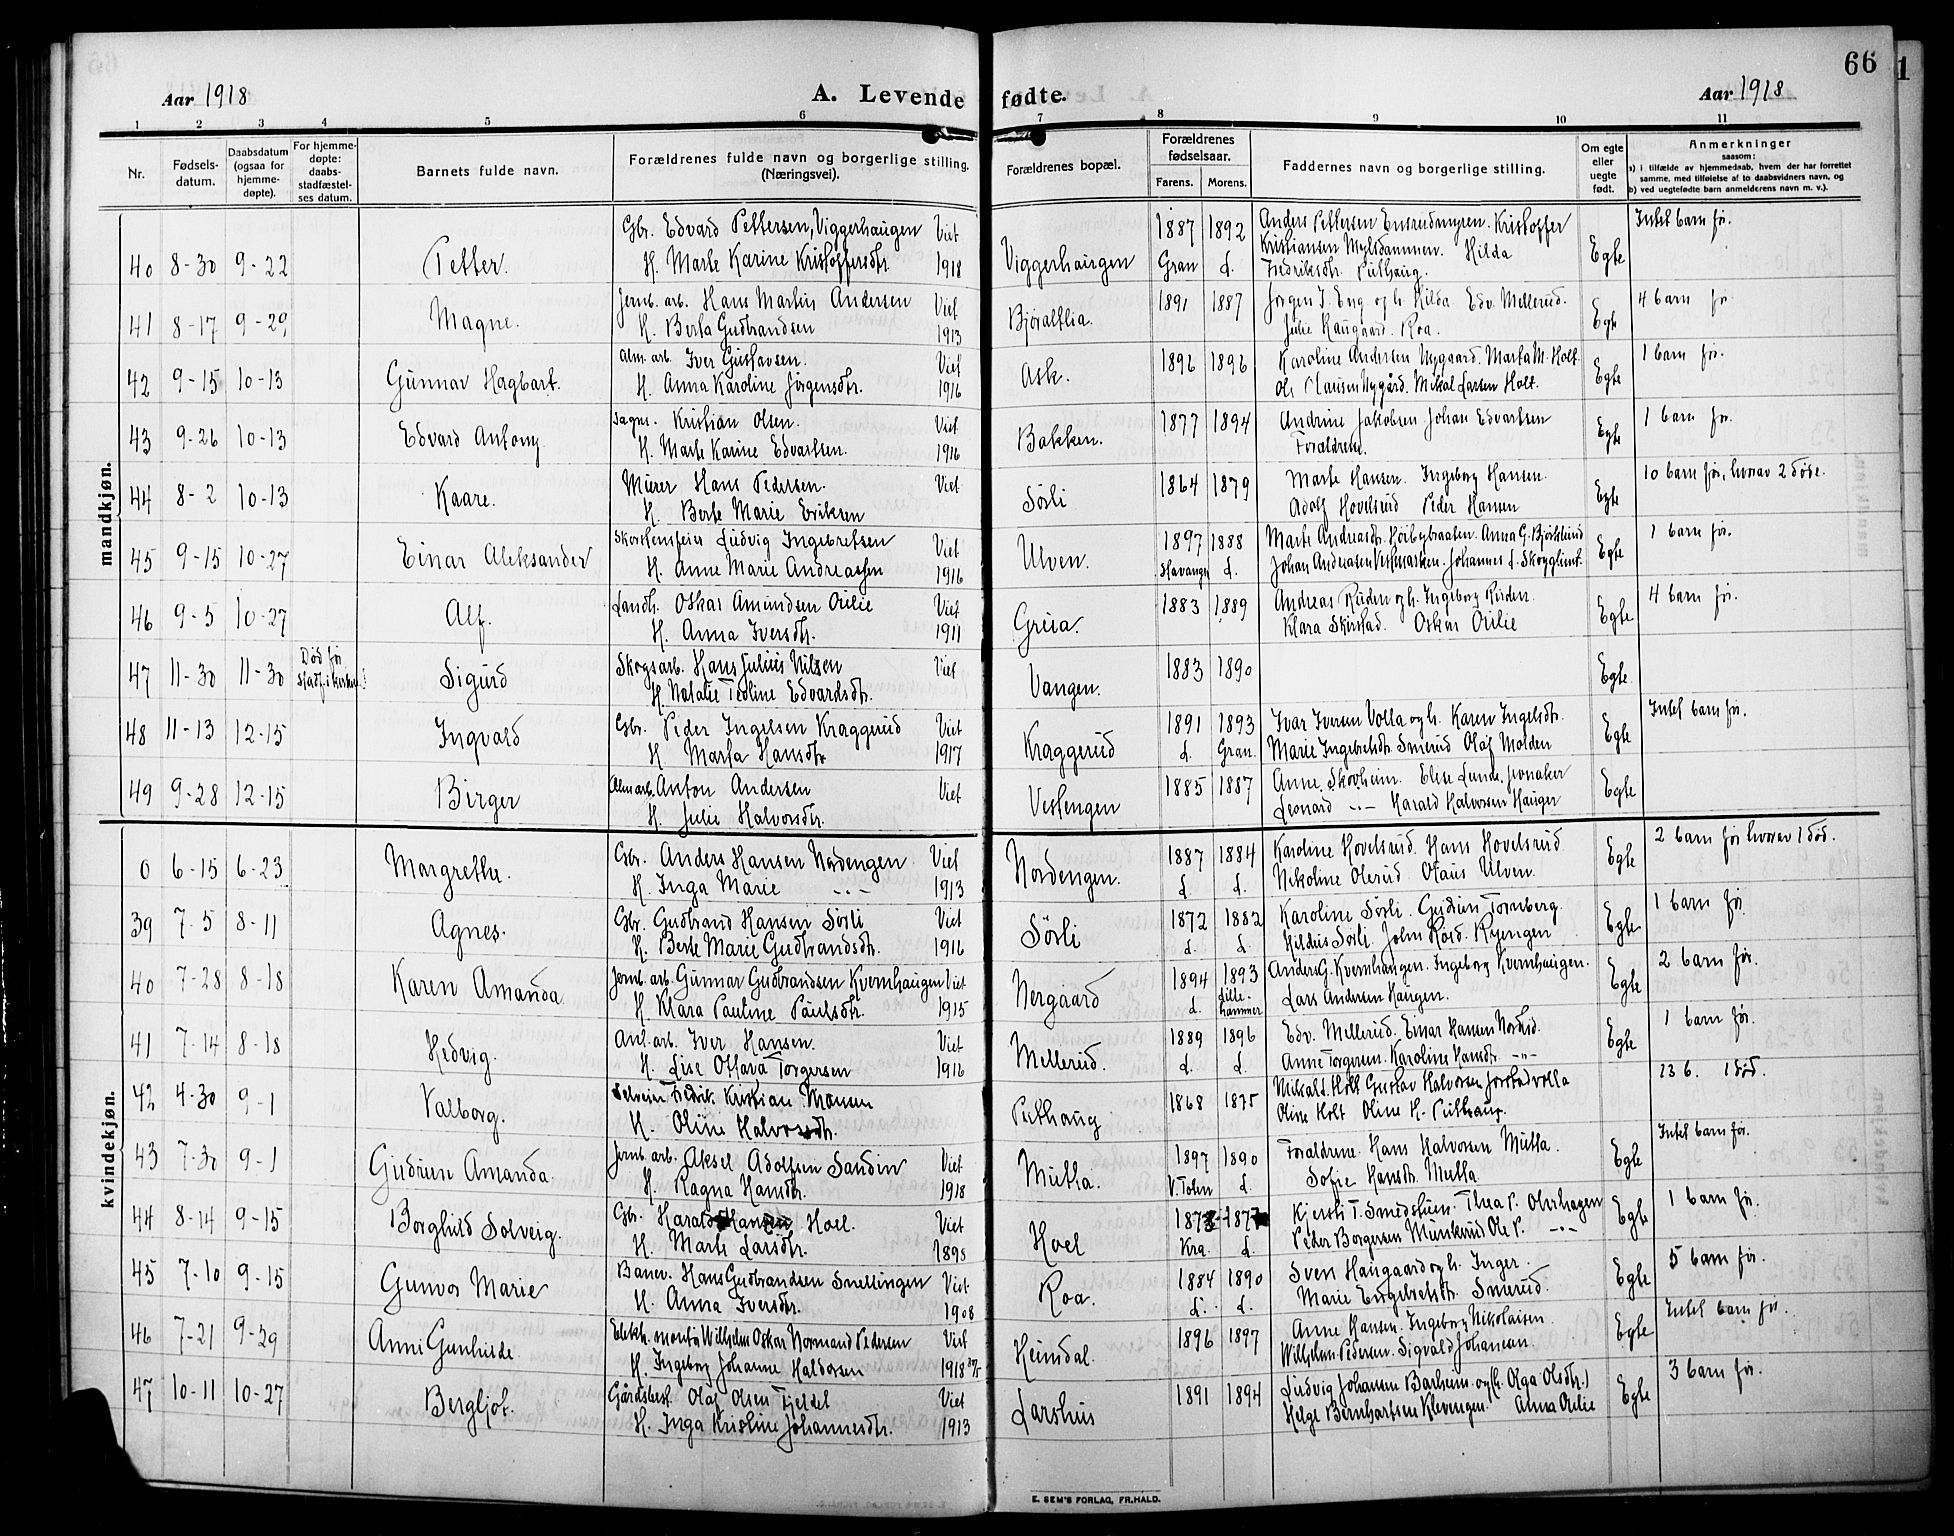 66
1
Aar 1918
A. Levende fødte.
Aar 1918
1 2 3 4 5 6 7 8 9 10 11
Nr.
Fødsels-
datum.
Daabsdatum
(ogsaa for
hjemme-
døpte).
For hjemme-
døpte:
daabs-
stadfæstel-
ses datum.
Barnets fulde navn.
Forældrenes fulde navn og borgerlige stilling.
(Næringsvei).
Forældrenes bopæl.
Forældrenes
fødselsaar.
Farens. Morens.
Faddernes navn og borgerlige stilling.
Om egte
eller
uegte
født.
Anmerkninger
saasom:
a) i tilfælde av hjemmedaab, hvem der har forrettet
samme, med tilføielse af to daabsvidners navn, og
b) ved uegtefødte barn anmelderens navn m. v.).
mandkjøn.
40 8-30 9-22 Petter. Gbr. Edvard Pettersen, Viggerhaugen Viet
H. Marte Karine Kristoffersdtr. 1918
Viggerhaugen 1887 1892 Anders Pettersen Kristoffer
Gran d. Kristiansen Hilda
Fredriksdtr. Puthaug. Egte Intet barn før.
41 8-17 9-29 Magne. Jernb. arb. Hans Martin Andersen Viet
H. Berta Gudbrandsen 1913
Bjøraltlia. 1891 1887 Jørgen J. Eng og h. Hilda. Edv. Mellerud.
Julie Haugaard. Roa. Egte 4 barn før.
42 9-15 10-13 Gunnar Hagbart. Alm. arb. Iver Gustavsen. Viet
H. Anna Karoline Jørgensdtr. 1916
Ask. 1896 1896 Karoline Andersen Nygaard. Marta M. Holt
Ole Clausen Nygård. Mikal Larsen Holt. Egte 1 barn før.
43 9-26 10-13 Edvard Antony. Sagm. Kristian Olsen. Viet
H. Marte Karine Edvartsen. 1916
Bakken. 1877 1894 Andrine Jakobsen Johan Edvartsen
Forældrene. Egte 1 barn før.
44 8-2 10-13 Kaare. Murer Hans Pedersen. Viet
H. Berte Marie Eriksen
Sørli 1864 1879 Marte Hansen. Ingeborg Hansen.
Adolf Hovelsrud Peder Hansen Egte 10 barn før, hvorav 2 døde.
45 9-15 10-27 Einar Aleksander Skorstensfeier Ludvig Ingebretsen Viet
H. Anne Marie Andreassen 1916
Ulven. 1897 1888 Marte Andreasdtr. Høibybraaten. Anna G. Bjørklund
Stavanger d. Johan Andreasen Vestmarken. Johannes L. Skoyglimt. Egte 1 barn før.
46 9-5 10-27 Alf. Landh. Oskar Amundsen Oulie Viet
H. Anna Iversdtr. 1911
Greia. 1883 1889 Andreas Ruden og h. Ingeborg Ruden.
Klara Skirstad. Oskar Oulie Egte 4 barn før.
47 11-30 11-30 Død før
Stadf. i kirken. Sigurd Skogsarb. Hans Julius Nilsen Viet
H. Natalie Teoline Edvardsdtr.
Vangen. 1883 1890 Egte
48 11-13 12-15 Ingvald Gbr. Peder Ingelsen Kraggerud Viet
H. Marta Hansdtr 1917
Kraggerud 1891 1893 Ivar Iversen Volla og h. Karen Ingelsdtr.
d. Gran Marie Ingebretsdtr. Smerud Olaf Molden Egte Intet barn før.
49 9-28 12-15 Birger Alm arb. Anton Andersen Viet
H. Julie Halvorsdtr.
Vestengen 1885 1887 Anne Skovheim. Elise Lunde, Jevnaker
Leonard -"- Harald Halvorsen Hauger Egte
kvindekjøn.
0 6-15 6-23 Margrethe. Gbr. Anders Hansen Nordengen Viet
H. Inga Marie -"- 1913
Nordengen. 1887 1884 Karoline Hovelsrud. Hans Hovelsrud.
d. d. Nikoline Olerud. Olaus Ulven. Egte 2 barn før hvorav 1 død.
39 7-5 8-11 Agnes. Gbr. Gudbrand Hansen Sørli Viet
H. Berte Marie Gudbrandsdtr. 1916
Sørli 1872 1882 Karoline Sørli. Gudrun Tomeberg.
d. d. Hildus Sørli. John Roid. Ryengen Egte 1 barn før.
40 7-28 8-18 Karen Amanda Jernb. arb. Gunnar Gudbrandsen Kvernhaugen Viet
H. Klara Pauline Paulsdtr. 1915
Nergaard 1894 1893 Anders G. Kvernhaugen. Ingeborg Kvernhaugen.
d. Lille-
hammer Lars Andersen Haugen. Egte 2 barn før.
41 7-14 8-18 Hedvig. Anl. arb. Iver Hansen. Viet
H. Lise Ottava Torgersen 1916
Mellerud. 1889 1896 Edv. Mellerud. Einar Hansen Nordsd.
d. d. Anne Torgersen. Karoline Hansdtr. -"- Egte 1 barn før.
42 4-30 9-1 Valborg. Selveier Fredrik Kristian Monsen
H. Oline Halvorsdtr.
Puthaug 1868 1875 Mikal L. Holt Gustav Halvorsen Jorstadvolla
Oline Holt Oline H. Puthaug 13 b. 1 død.
43 7-30 9-1 Gudrun Amanda. Jernb. arb. Aksel Adolfsen Sandin Viet
H. Ragna Hansdtr. 1918
Mutta. 1897 1890 Forældrene. Hans Halvorsen Mutta.
V. Toten d. Sofie Hansdtr Mutta Egte Intet barn før.
44 8-14 9-15 Borghild Solveig. Gbr. Harald Hansen Hoel. Viet
H. Marte Larsdtr. 1895
Hoel Kra. d. Kjersti T. Smedshus. Thea P. Olerhagen
Peder Borgersen Munkerud Ole P. -"- Egte 1 barn før.
45 7-10 9-15 Gunvor Marie Banev. Hans Gudbrandsen Snellingen Viet
H. Anna Iversdtr. 1908
Roa. 1884 1890 Sven Haugaard og h. Inger.
d. d. Marie Engebretsdtr. Smerud. Egte 5 barn før.
46 7-21 9-29 Anni Gunhilde. Elektr. montø Wilhelm Oskar Normand Pedersen Viet
H. Ingeborg Johanne Haldorsen 1918
Heimdal. 1896 1897 Anne Hansen. Ingeborg Nikolaisen.
Wilhelm Pedersen. Sigvald Johansen. Egte Intet barn før.
47 10-11 10-27 Bergljot. Gårdsbest. Olaf Olsen Fjeldet Viet
H. Inga Kristine Johannesdtr. 1913
Larshus 1891 1894 Ludvig Johansen Barheim og (h. Olga Olsdtr.)
Helge Bernhartsen Klevengen. Alma Oulie Egte 3 barn før.
E. SEM'S FORLAG, FR.HALD.